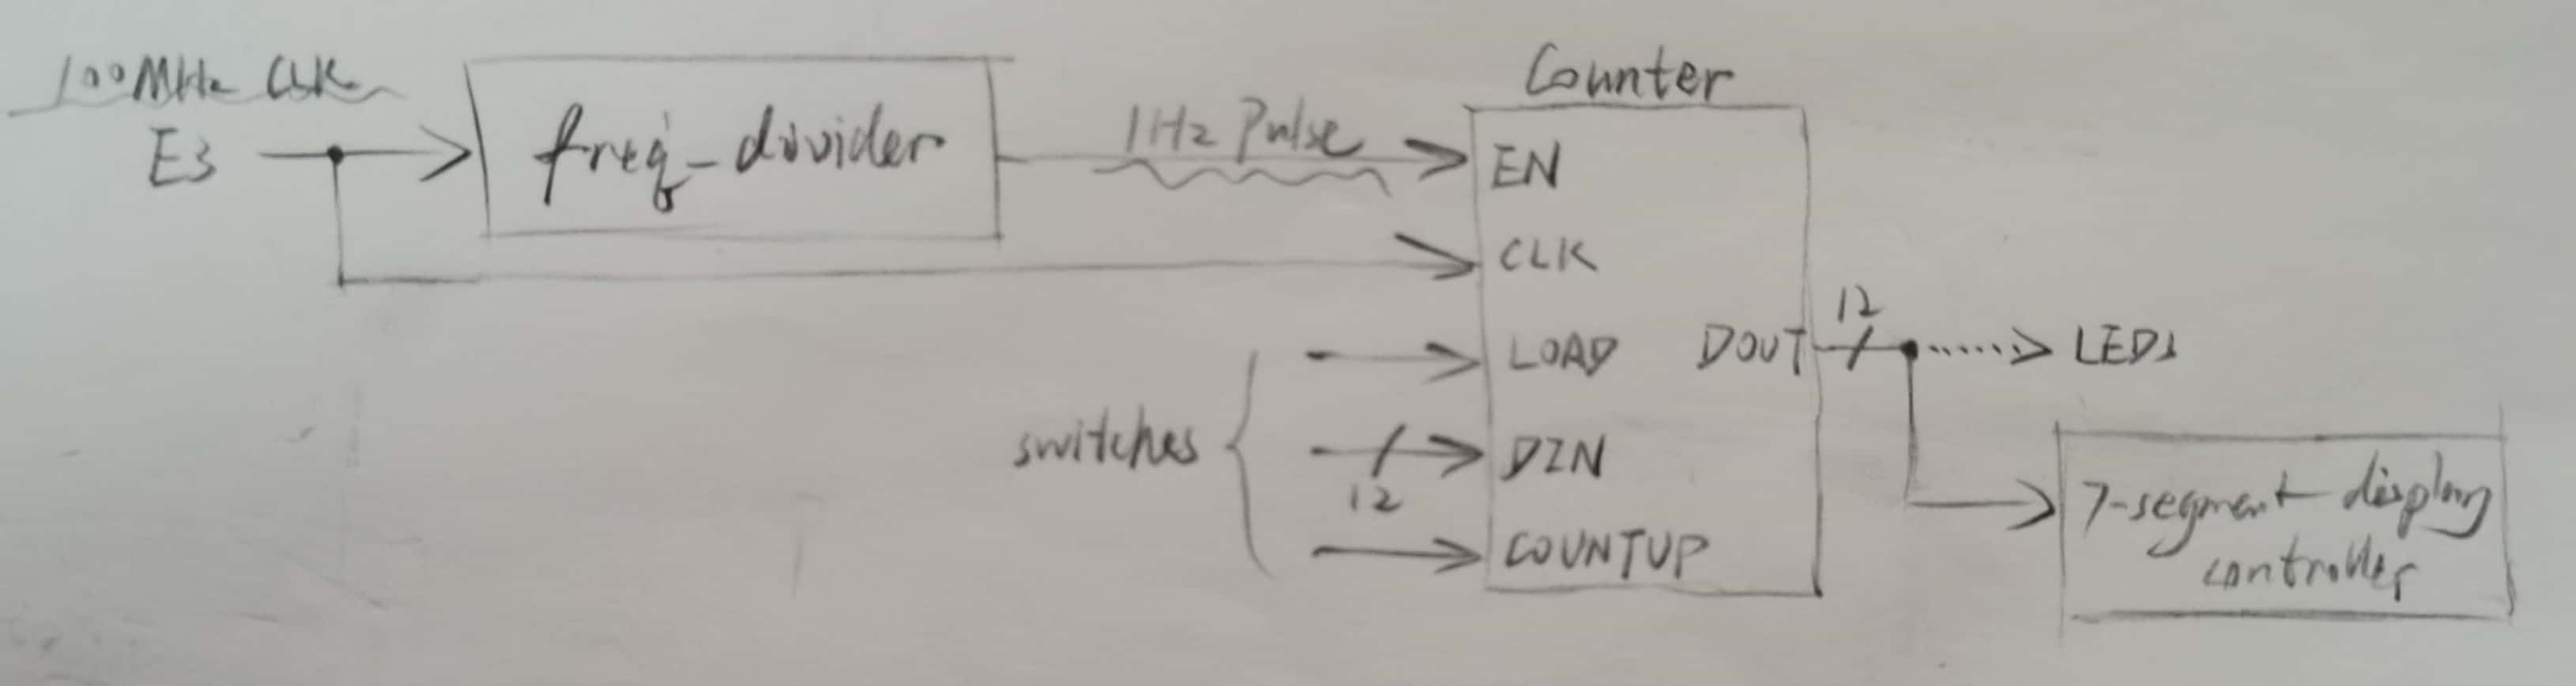 100MHz CLK
E3
freq_divider
1Hz Pulse
Counter
EN
CLK
LOAD
DIN
12
COUNTUP
switches
DOUT
12
LEDs
7-segment display
controller